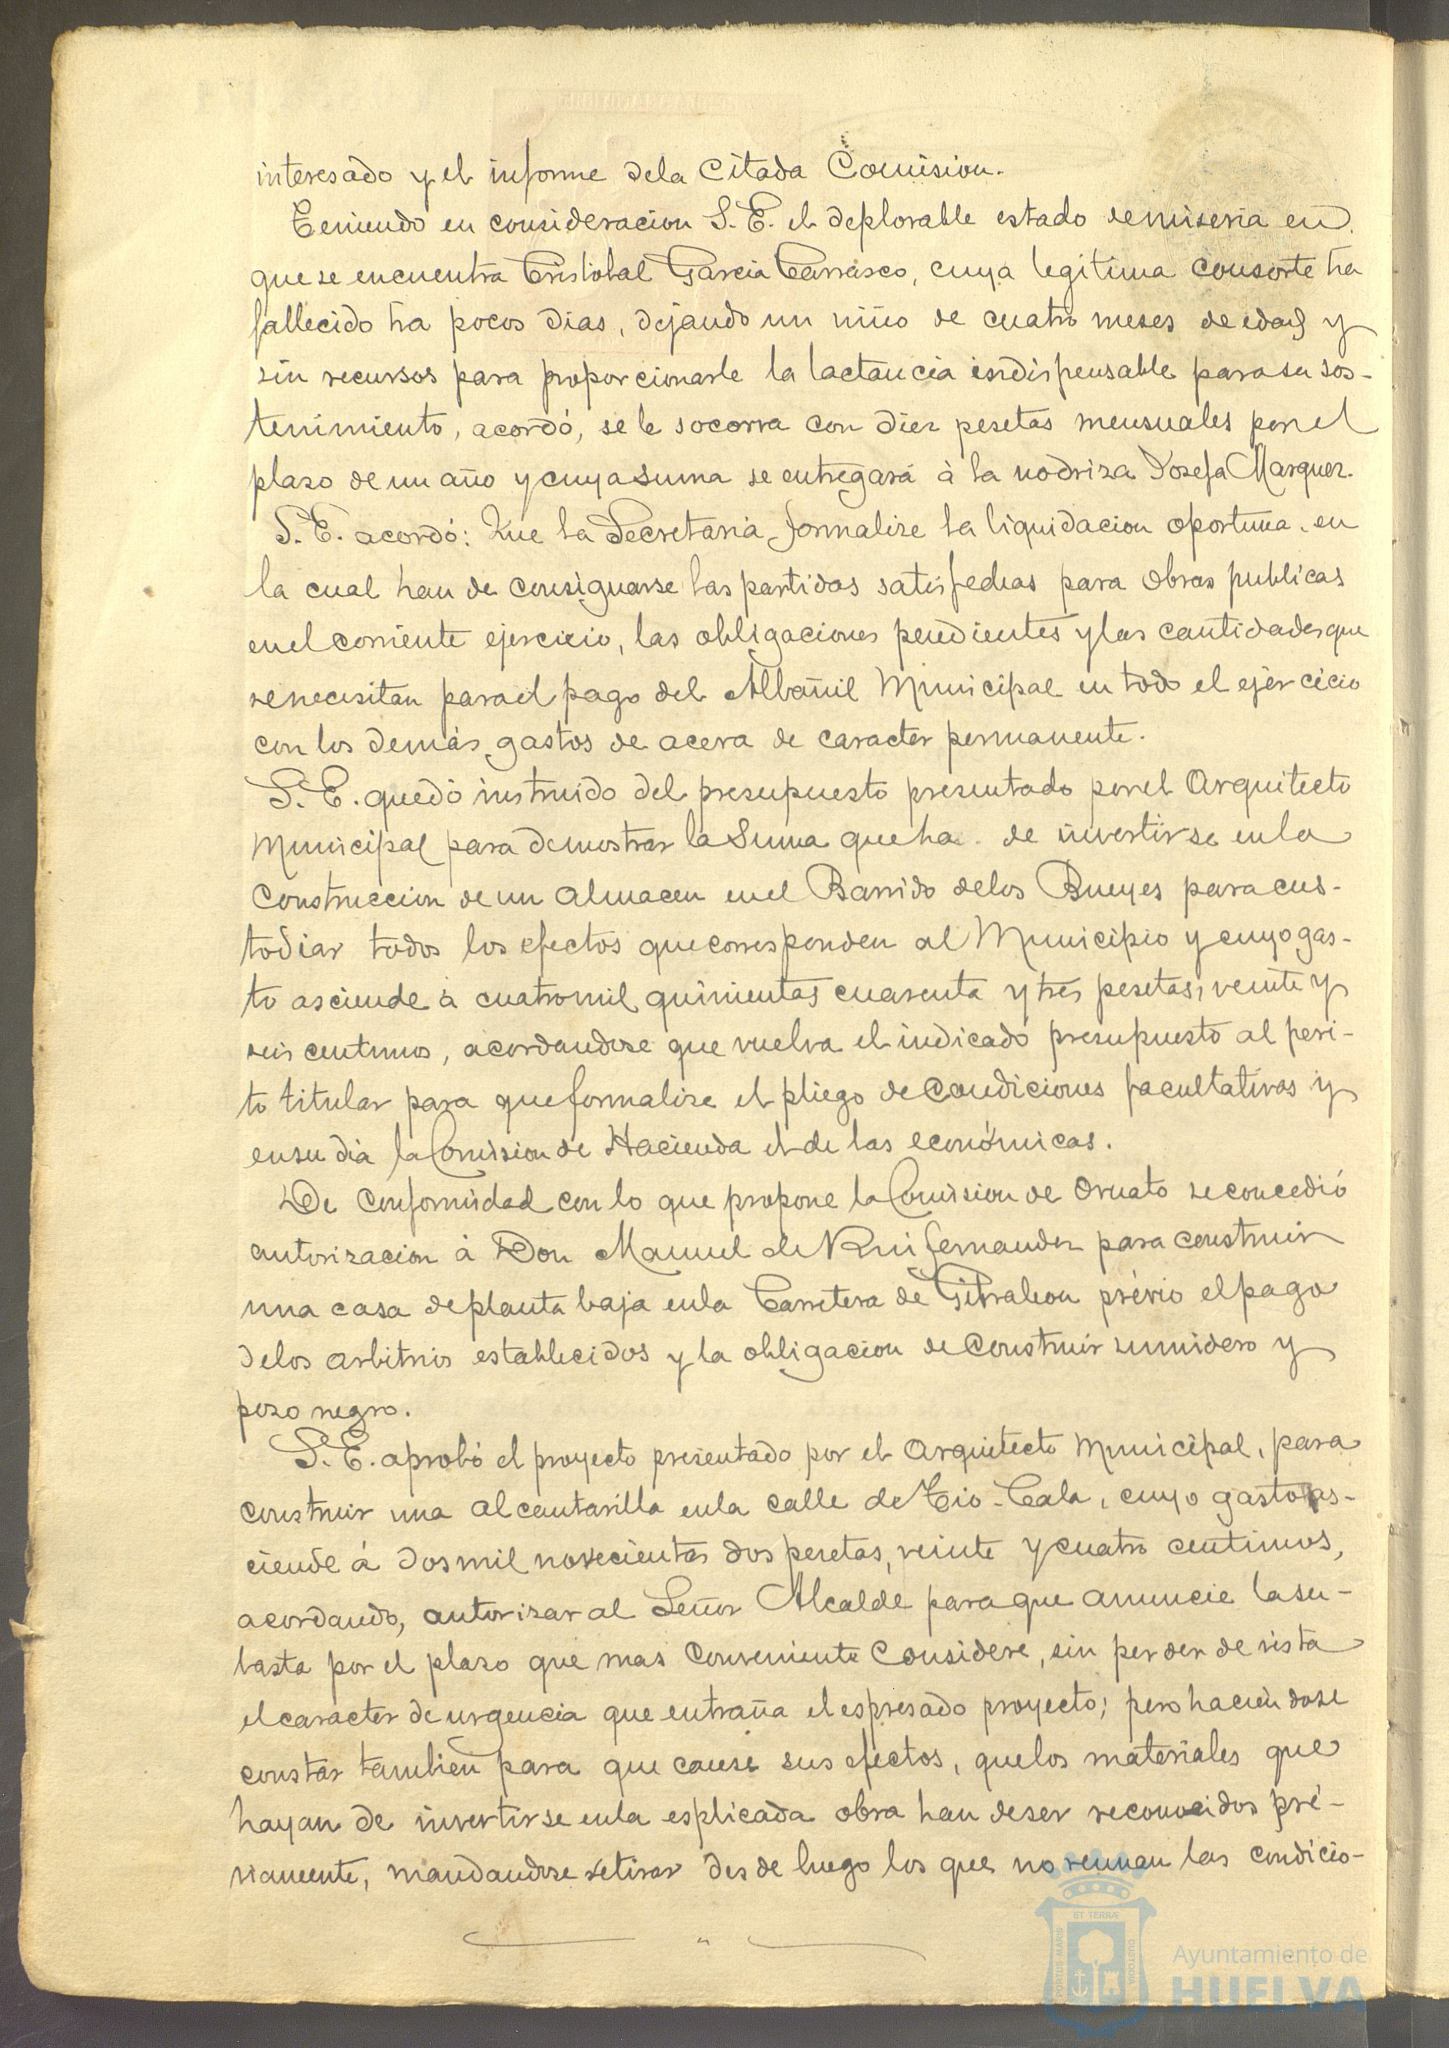 interesado y el informe dela citada Comision.
Teniendo en consideracion S. E. el deplorable estado de miseria en
que se encuentra Cristobal Garcia Carrasco, cuya legitima consorte ha
fallecido ha pocos dias, dejando un niño de cuatro meses de edad y
sin recursos para proporcionarle la lactancia indispensable para su sos-
tenimiento, acordó, se le socorra con diez pesetas mensuales por el
plazo de un año y cuya suma se entregará á la nodriza Josefa Marquez.
S. E. acordó: Que la Secretaria formalize la liquidacion oportuna en
la cual han de consignarse las partidas satisfechas para obras publicas
en el corriente ejercicio, las obligaciones pendientes y las cantidades que
se necesitan para el pago del Albañil Municipal en todo el ejercicio
con los demás gastos de acera de caracter permanente.
S. E. quedó instruido del presupuesto presentado por el Arquitecto
Municipal para demostrar la suma que ha de invertirse en la
construccion de un almacen en el Barrido de los Bueyes para cus-
todiar todos los efectos que corresponden al Municipio y cuyo gas-
to asciende á cuatro mil quinientas cuarenta y tres pesetas, veinte y
seis centimos, acordandose que vuelva el indicado presupuesto al peri-
to titular para que formalize el pliego de condiciones facultativas y
en su dia la Comision de Hacienda el de las económicas.
De conformidad con lo que propone la Comision de Ornato se concedió
autorizacion á Don Manuel de Rui fernandez para construir
una casa de planta baja en la Carretera de Gibraleon prévio el pago
de los arbitrios establecidos y la obligacion de construir sumidero y
pozo negro.
S. E. aprobó el proyecto presentado por el Arquitecto Municipal, para
construir una alcantarilla en la calle de Tio-Cala, cuyo gasto as-
ciende á dos mil novecientas dos pesetas, veinte y cuatro centimos,
acordando, autorizar al Señor Alcalde para que anuncie la su-
basta por el plazo que mas conveniente considere, sin perder de vista
el caracter de urgencia que entraña el espresado proyecto; pero haciendose
constar tambien para que cause sus efectos, que los materiales que
hayan de invertirse en la esplicada obra han de ser reconocidos pré-
viamente, mandandose retirar desde luego los que no reunan las condicio-
PORTUS MARIS ET TERRÆ CUSTODIA
Ayuntamiento de
HUELVA